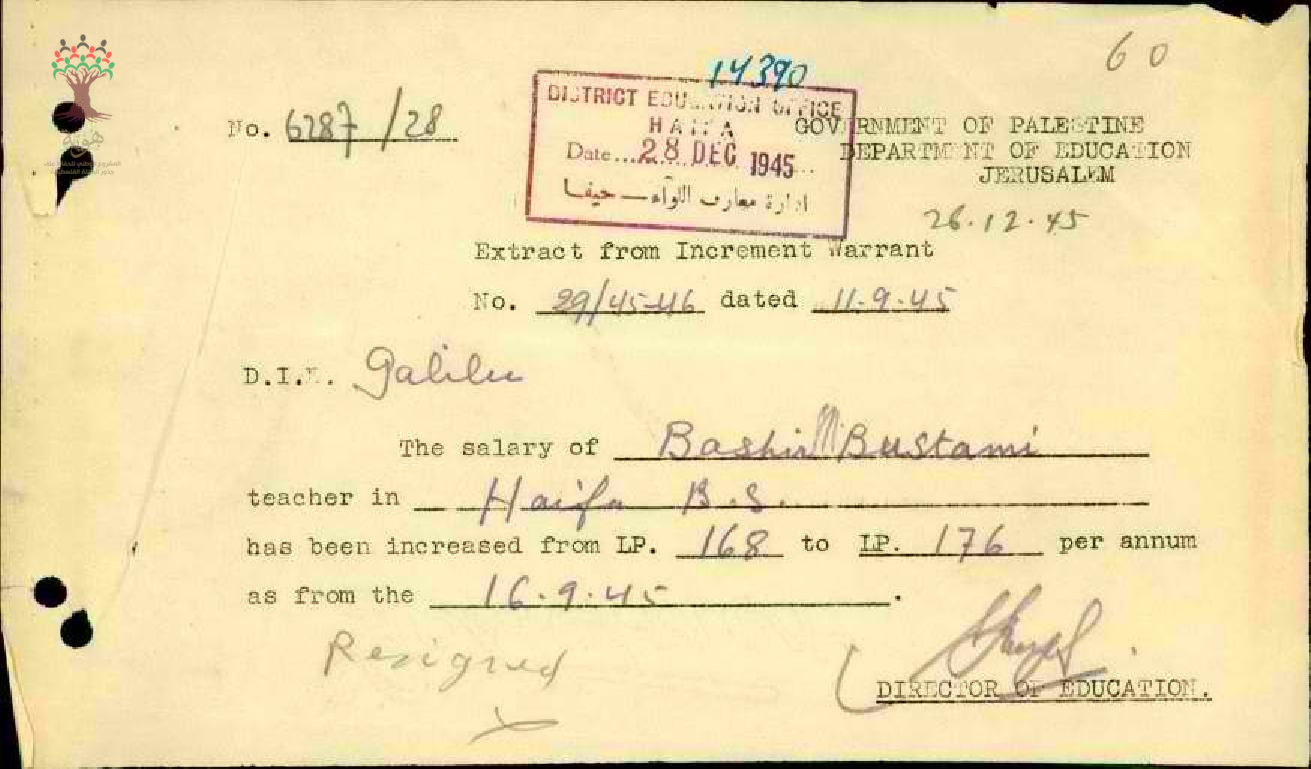 60
14390
No. 6287/28
DISTRICT EDUCATION OFFICE
HAIFA
Date... 28 DEC 1945...
ادارة معارف اللوآء — حيفا
GOVERNMENT OF PALESTINE
DEPARTMENT OF EDUCATION
JERUSALEM
26.12.45
Extract from Increment Warrant
No. 29/45-46 dated 11.9.45
D.I.E. Galilee
The salary of Bashir Bustami
teacher in Haifa B.S.
has been increased from LP. 168 to LP. 176 per annum
as from the 16.9.45.
Resigned
DIRECTOR OF EDUCATION.
هوية